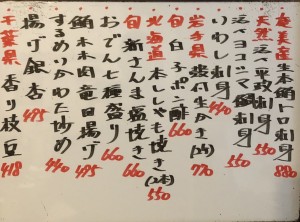 奄美産生本鮪トロ刺身 880
天然〆平政刺身 550
〆イヨコシマ鯛刺身 550
いわし刺身 440
岩手県 殻付生かき(1ヶ) 770
旬 白子ポン酢 660
北海道 本ししゃも焼き(2本) 550
旬 新さんま塩焼き 660
おでん七種盛り 660
鮪ホホ肉竜田揚げ 495
するめいかわた炒め 440
揚げ銀杏 495
千葉県 香り枝豆 418